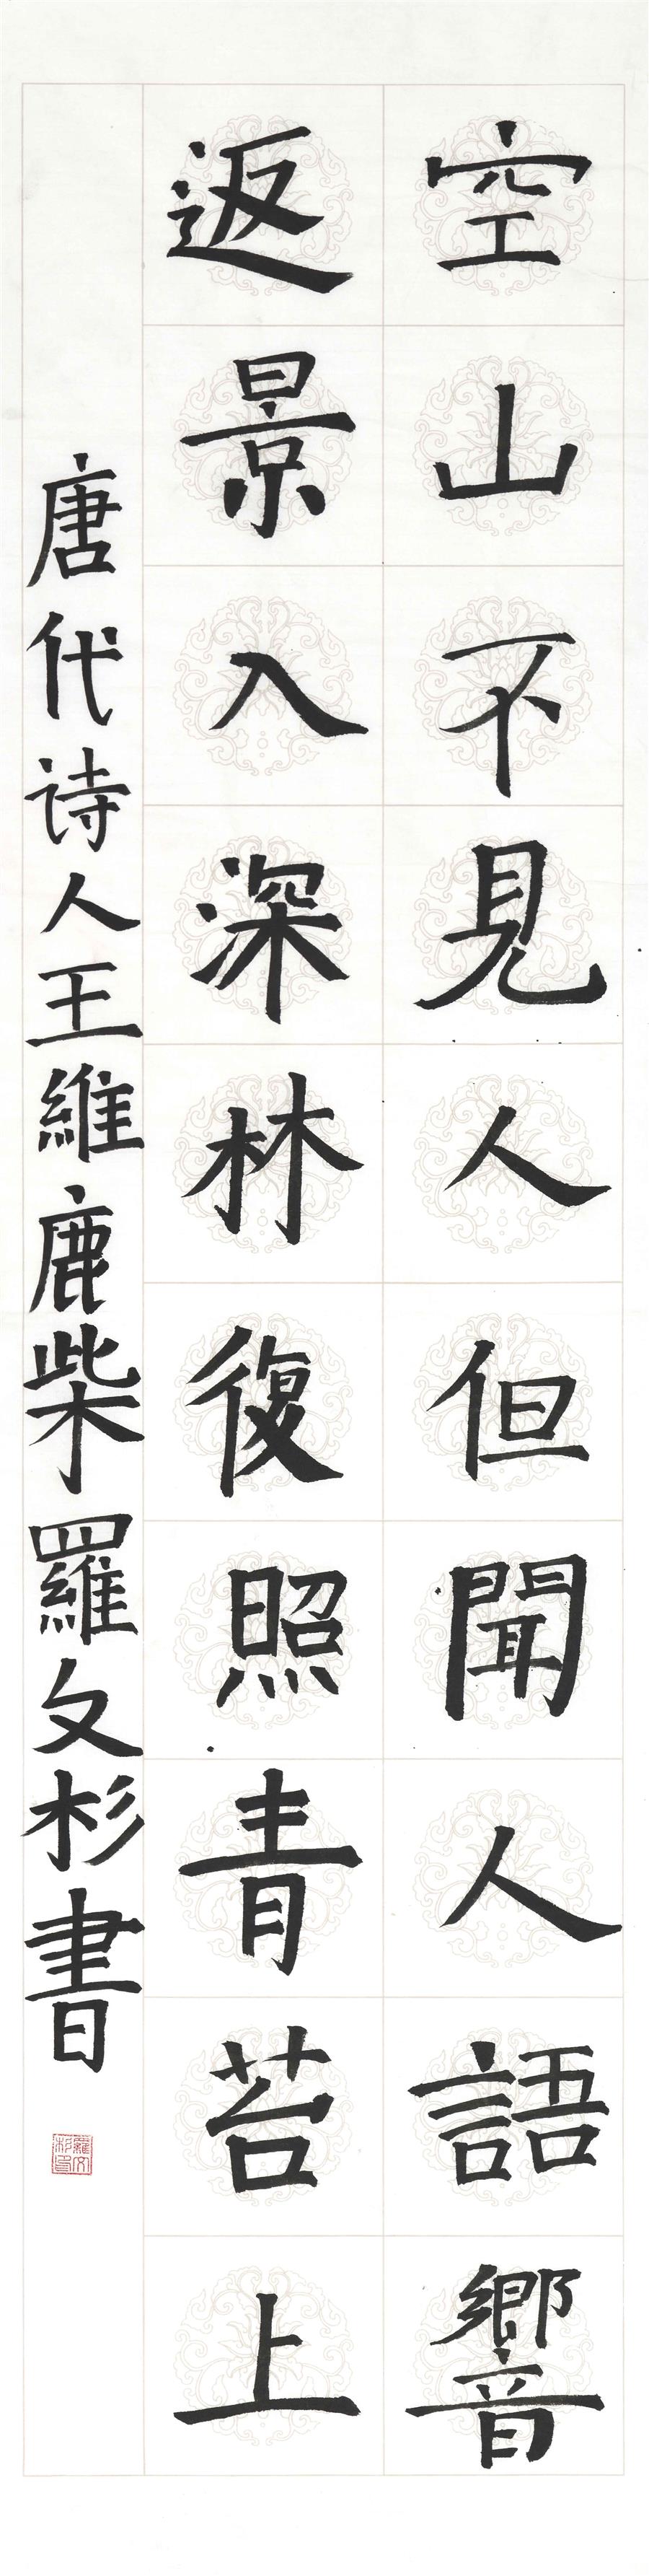 空山不見人但聞人語響
返景入深林復照青苔上
唐代诗人王維鹿柴羅文杉書
羅文杉印